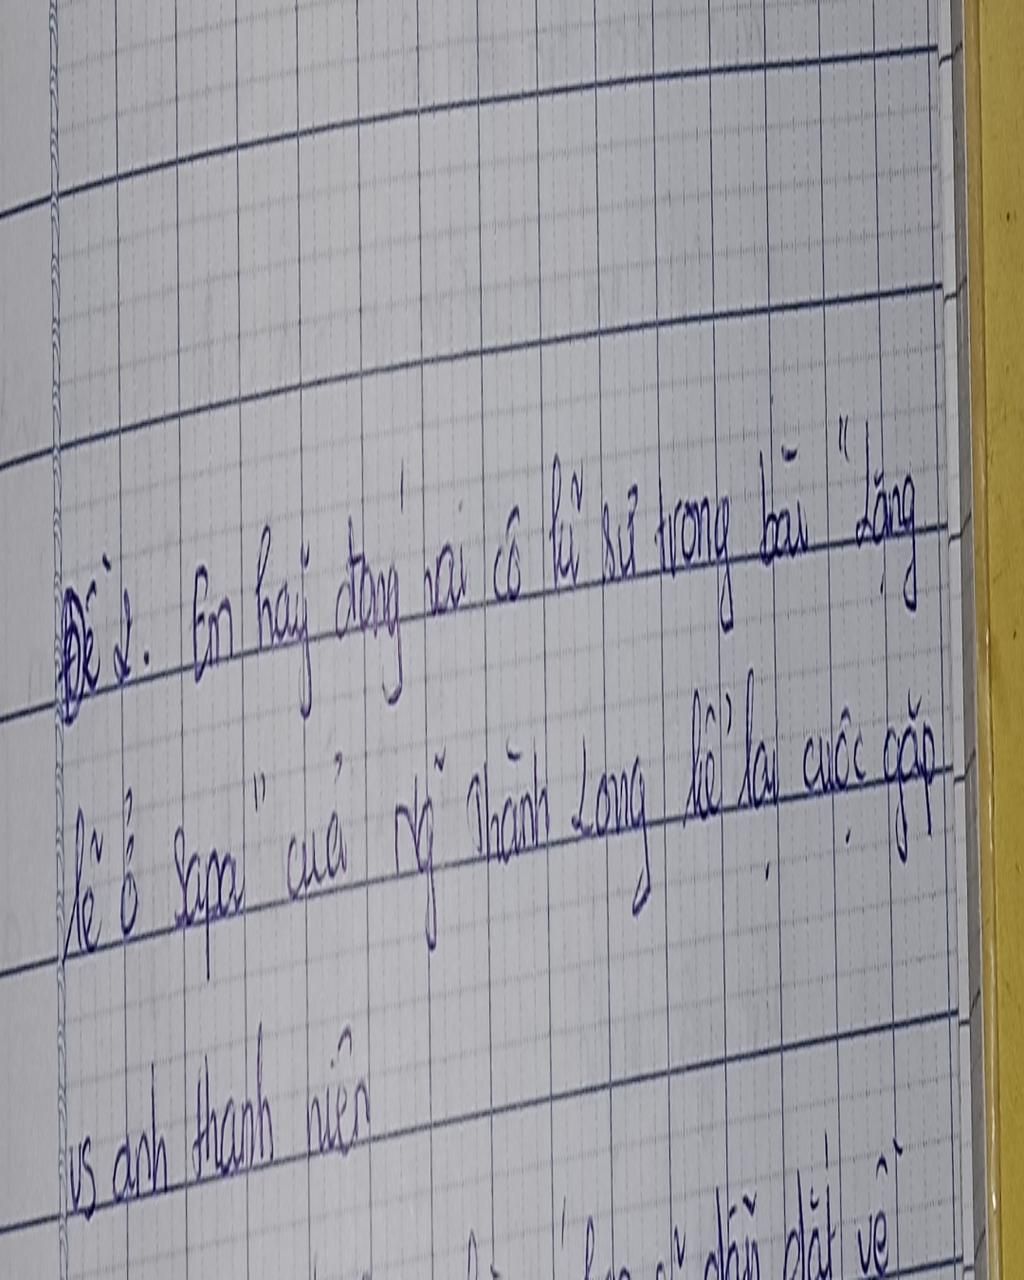 Đề 2. Em hãy đóng vai cô kĩ sư trong bài "Lặng
lẽ ở Sapa" của Ng~ Thành Long kể lại cuộc gặp
vs anh thanh niên
dẫn dắt về